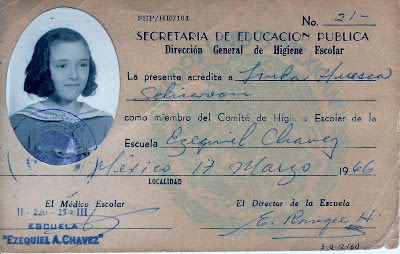 SEP/HE/103.
No. 21-
SECRETARIA DE EDUCACION PUBLICA
Dirección General de Higiene Escolar
La presente acredita a Linda Huesca
como miembro del Comité de Higiene Escolar de la
Escuela Ezequiel Chavez
México 17 Marzo 1966
LOCALIDAD
El Médico Escolar
El Director de la Escuela
II-220-25-III
E. Rangel H.
ESCUELA
"EZEQUIEL A. CHAVEZ"